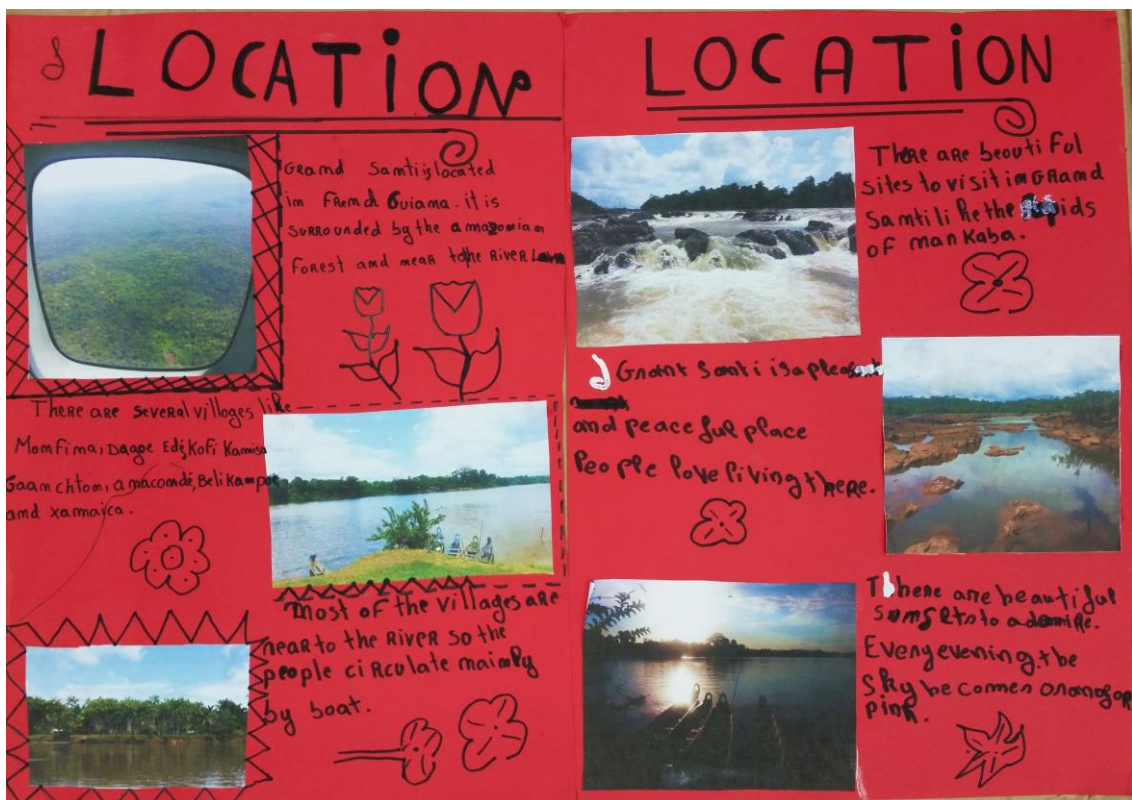 LOCATION
Grand Santi is located
in French Guiana. it is
surrounded by the amazonian
forest and near to the river
There are several villages like
Monfina, Dagpe Edi, Kofi Kamisa
Gaanchton, anacondé, Belikampoe
and xamaica.
Most of the villages are
near to the river so the
people circulate mainly
by boat.
LOCATION
There are beoutiful
sites to visit in Grand
Santi like the
of man Kaba.
Grant Santi is a
and peaceful place
People love living there.
There are beautiful
sunsets to admire.
Every evening, the
sky becomes orange or
pink.